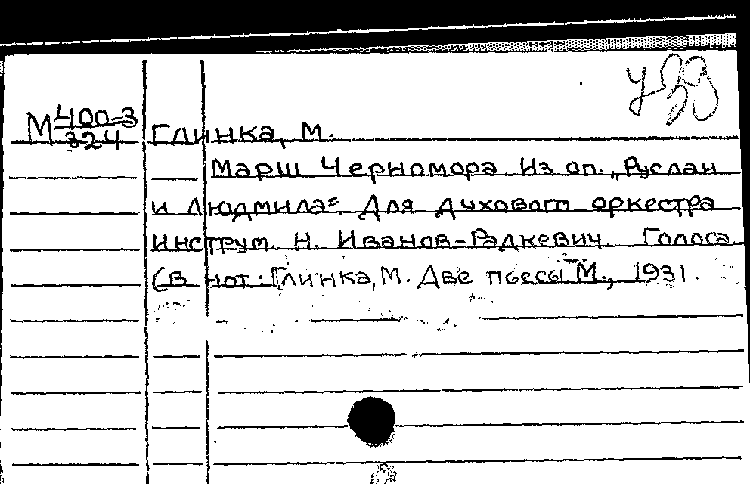 у 39
М 400-3
324
Глинка, М.
Марш Черномора. Из оп. „Руслан
и Людмила". Для духового оркестра
инструм. Н. Иванов-Радкевич. Голоса
(в нот: Глинка, М. Две пьесы М., 1931.